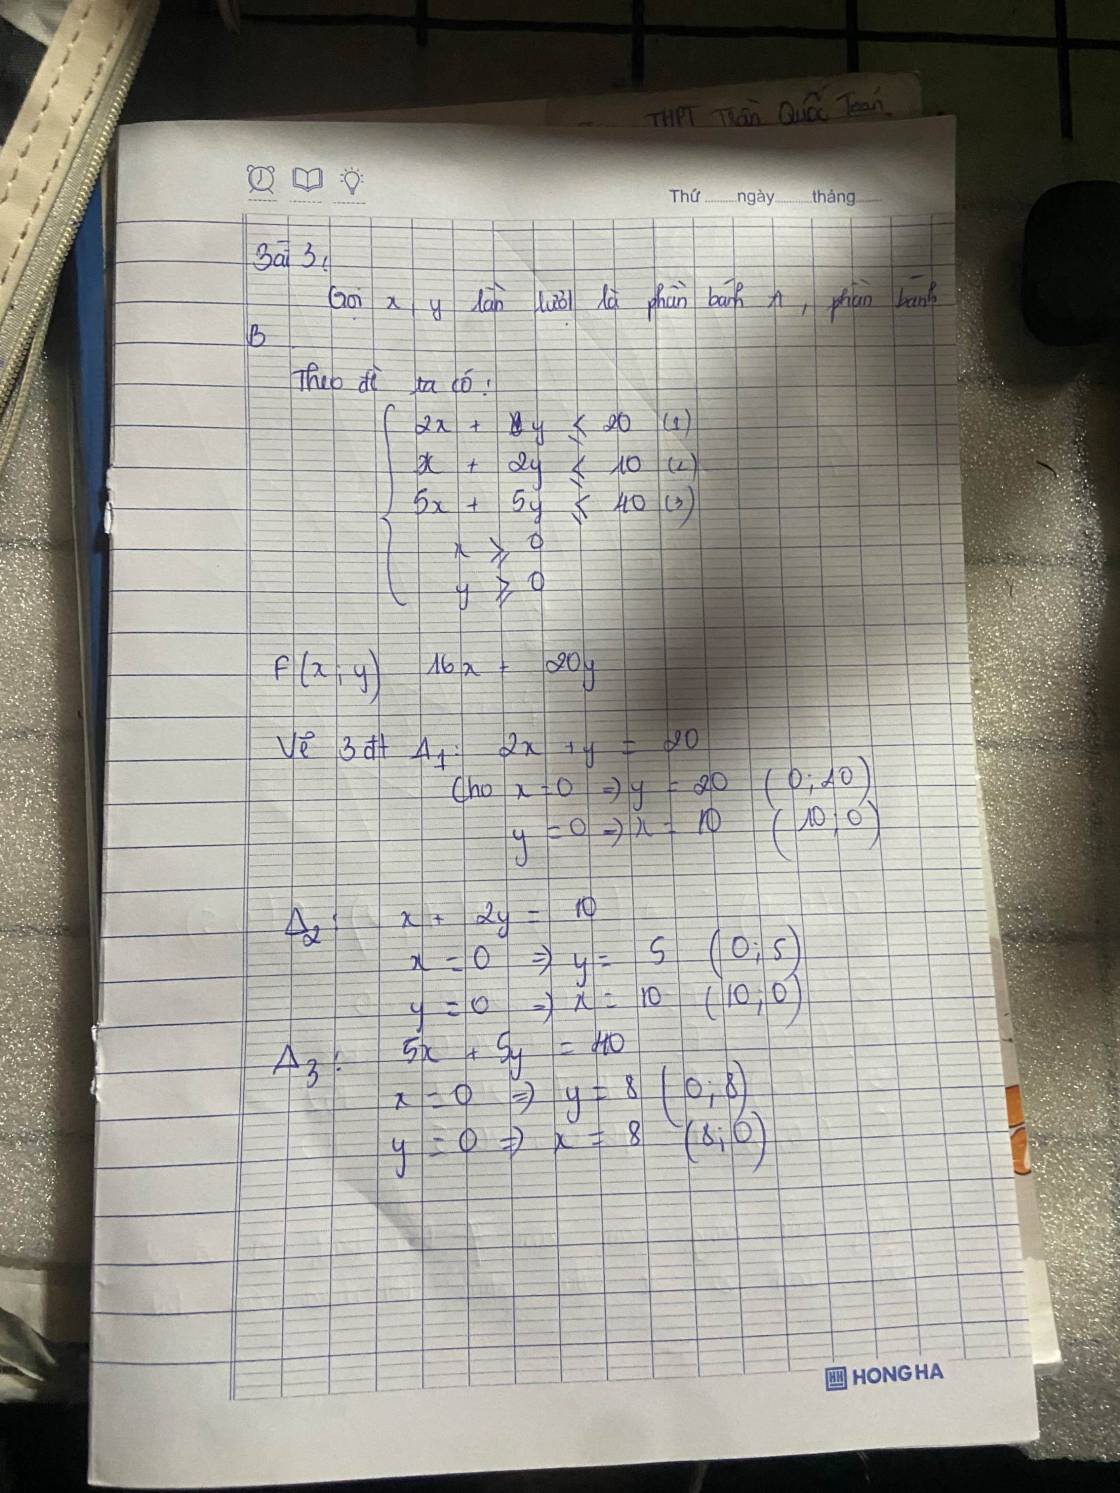 THPT Trần Quốc Toản
Thứ ........ ngày ........ tháng ........
Bài 3:
Gọi x, y lần lượt là phần bánh A, phần bánh
B
Theo đề ta có:
2x + y ≤ 20 (1)
x + 2y ≤ 10 (2)
5x + 5y ≤ 40 (3)
x ≥ 0
y ≥ 0
F(x; y) 16x + 20y
Vẽ 3 đt Δ1: 2x + y = 20
Cho x = 0 ⇒ y = 20 (0; 20)
y = 0 ⇒ x = 10 (10; 0)
Δ2: x + 2y = 10
x = 0 ⇒ y = 5 (0; 5)
y = 0 ⇒ x = 10 (10; 0)
Δ3: 5x + 5y = 40
x = 0 ⇒ y = 8 (0; 8)
y = 0 ⇒ x = 8 (8; 0)
HH HONG HA